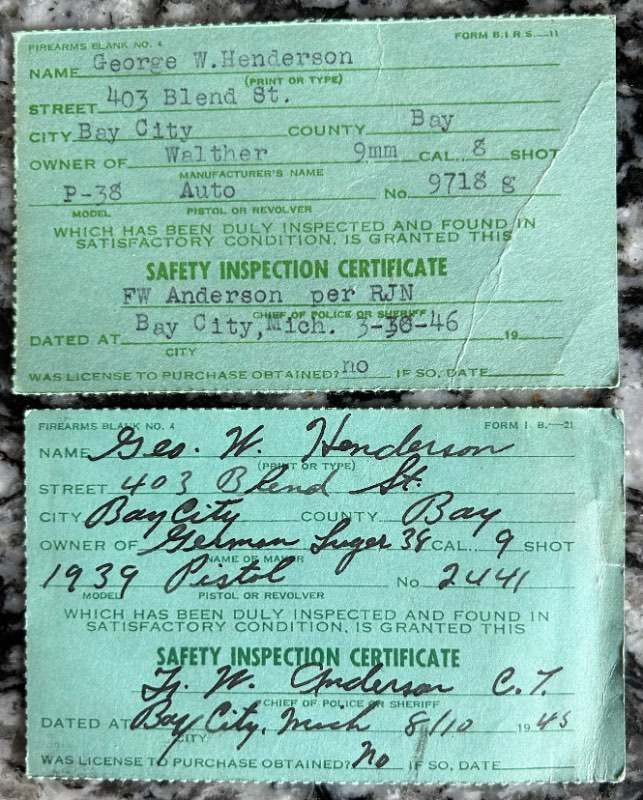 FIREARMS BLANK NO. 4 FORM B.I.R.S.—11
NAME George W.Henderson
(PRINT OR TYPE)
STREET 403 Blend St.
CITY Bay City COUNTY Bay
OWNER OF Walther 9mm CAL. 8 SHOT
MANUFACTURER'S NAME
P-38 Auto No. 9718 g
MODEL PISTOL OR REVOLVER
WHICH HAS BEEN DULY INSPECTED AND FOUND IN
SATISFACTORY CONDITION, IS GRANTED THIS
SAFETY INSPECTION CERTIFICATE
FW Anderson per RJN
CHIEF OF POLICE OR SHERIFF
DATED AT Bay City,Mich. 3-30-46 19
CITY
WAS LICENSE TO PURCHASE OBTAINED? no IF SO, DATE
FIREARMS BLANK NO. 4 FORM I. B.—21
NAME Geo. W. Henderson
(PRINT OR TYPE)
STREET 403 Blend St.
CITY Bay City COUNTY Bay
OWNER OF German Luger 38 CAL. 9 SHOT
NAME OF MAKER
1939 Pistol No. 2441
MODEL PISTOL OR REVOLVER
WHICH HAS BEEN DULY INSPECTED AND FOUND IN
SATISFACTORY CONDITION, IS GRANTED THIS
SAFETY INSPECTION CERTIFICATE
W. Anderson
CHIEF OF POLICE OR SHERIFF
DATED AT Bay City, Mich 8/10 1945
CITY
WAS LICENSE TO PURCHASE OBTAINED? No IF SO, DATE